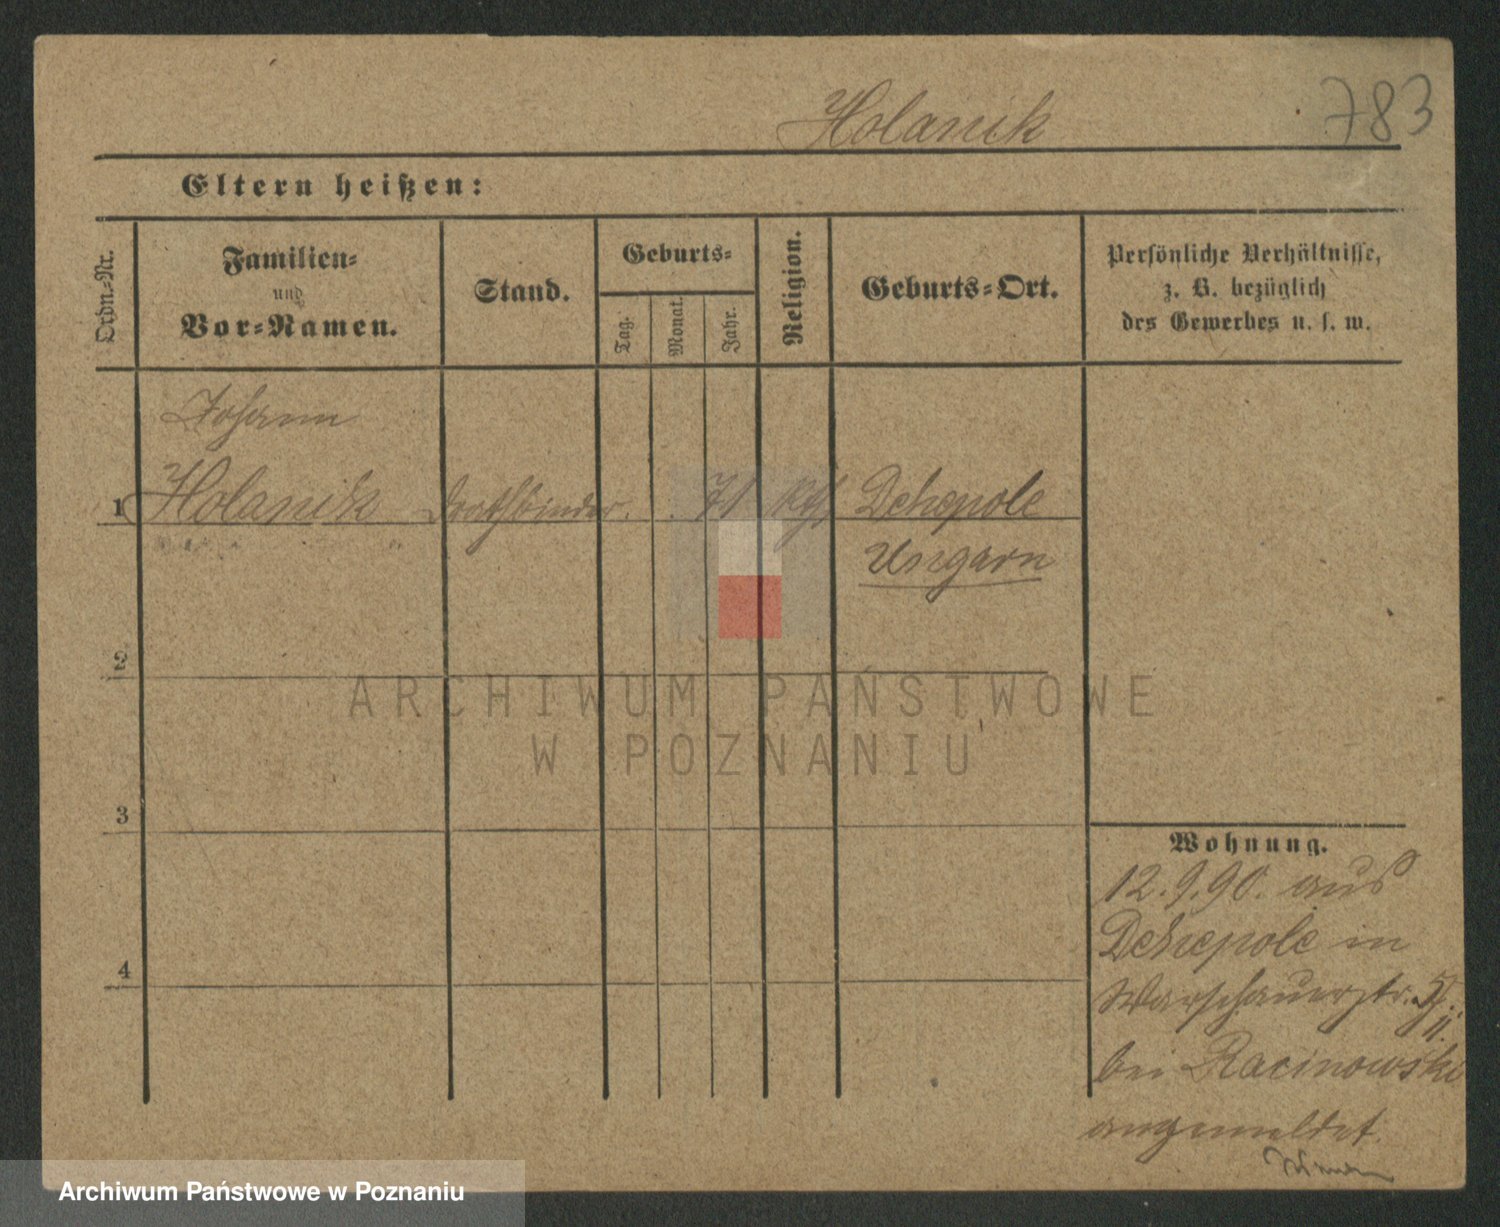 Holanik 783
Eltern heißen:
Ordn.-Nr.
Familien-
und
Vor-Namen.
Stand.
Geburts-
Tag.
Monat.
Jahr.
Religion.
Geburts-Ort.
Persönliche Verhältnisse,
z. B. bezüglich
des Gewerbes u. s. w.
Johann
1 Holanik Drathbinder. 71 kth Dehepole
Ungarn
2
3
4
ARCHIWUM PAŃSTWOWE
W POZNANIU
Wohnung.
12.9.90. aus
Dehepole in
Warschauerstr.
bei Racinowski
angemeldet.
Archiwum Państwowe w Poznaniu